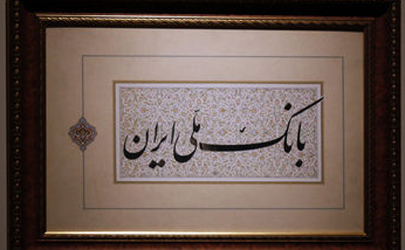 بانک ملّی ایران